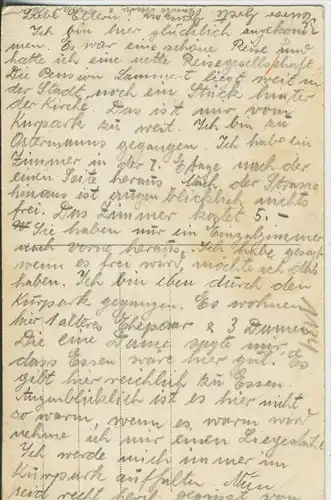 Liebe Eltern!
Ich bin hier glücklich angekom
men. Es war eine schöne Reise und
hatte ich eine nette Reisegesellschaft.
Die Pension Lammert liegt weit in
der Stadt, noch ein Stück hinter
der Kirche. Das ist mir vom
Kurpark zu weit. Ich bin zu
Ostermanns gegangen. Ich habe ein
Zimmer in der I. Etage nach der
einen Seite heraus. Nach der Strasse
hinaus ist augenblicklich nichts
frei. Das Zimmer kostet 5.-
Sie haben nur ein Einzelzimmer
nach vorne heraus. Ich habe gesagt
wenn es frei wird, möchte ich das
haben. Ich bin eben durch den
Kurpark gegangen. Es wohnen
hier 1 älteres Ehepaar & 3 Damen.
Die eine Dame sagt mir,
dass Essen wäre hier gut. Es
gibt hier reichlich zu Essen.
Augenblicklich ist es hier nicht
so warm, wenn es warm wird
nehme ich mir einen Liegestuhl.
Ich werde mich immer im
Kurpark aufhalten. Nun
seid recht herzl. gegrüsst von